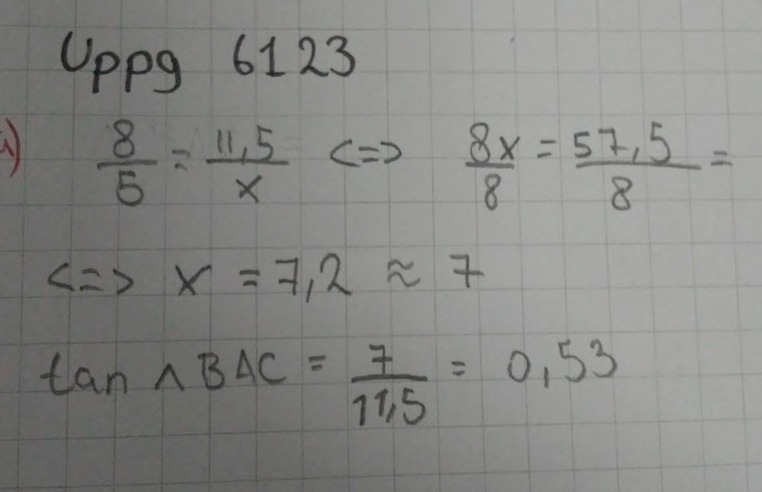 Uppg 6123
a) 8/5 = 11,5/x <=> 8x/8 = 57,5/8 =
<=> x = 7,2 ≈ 7
tan ∧ BAC = 7/11,5 = 0,53